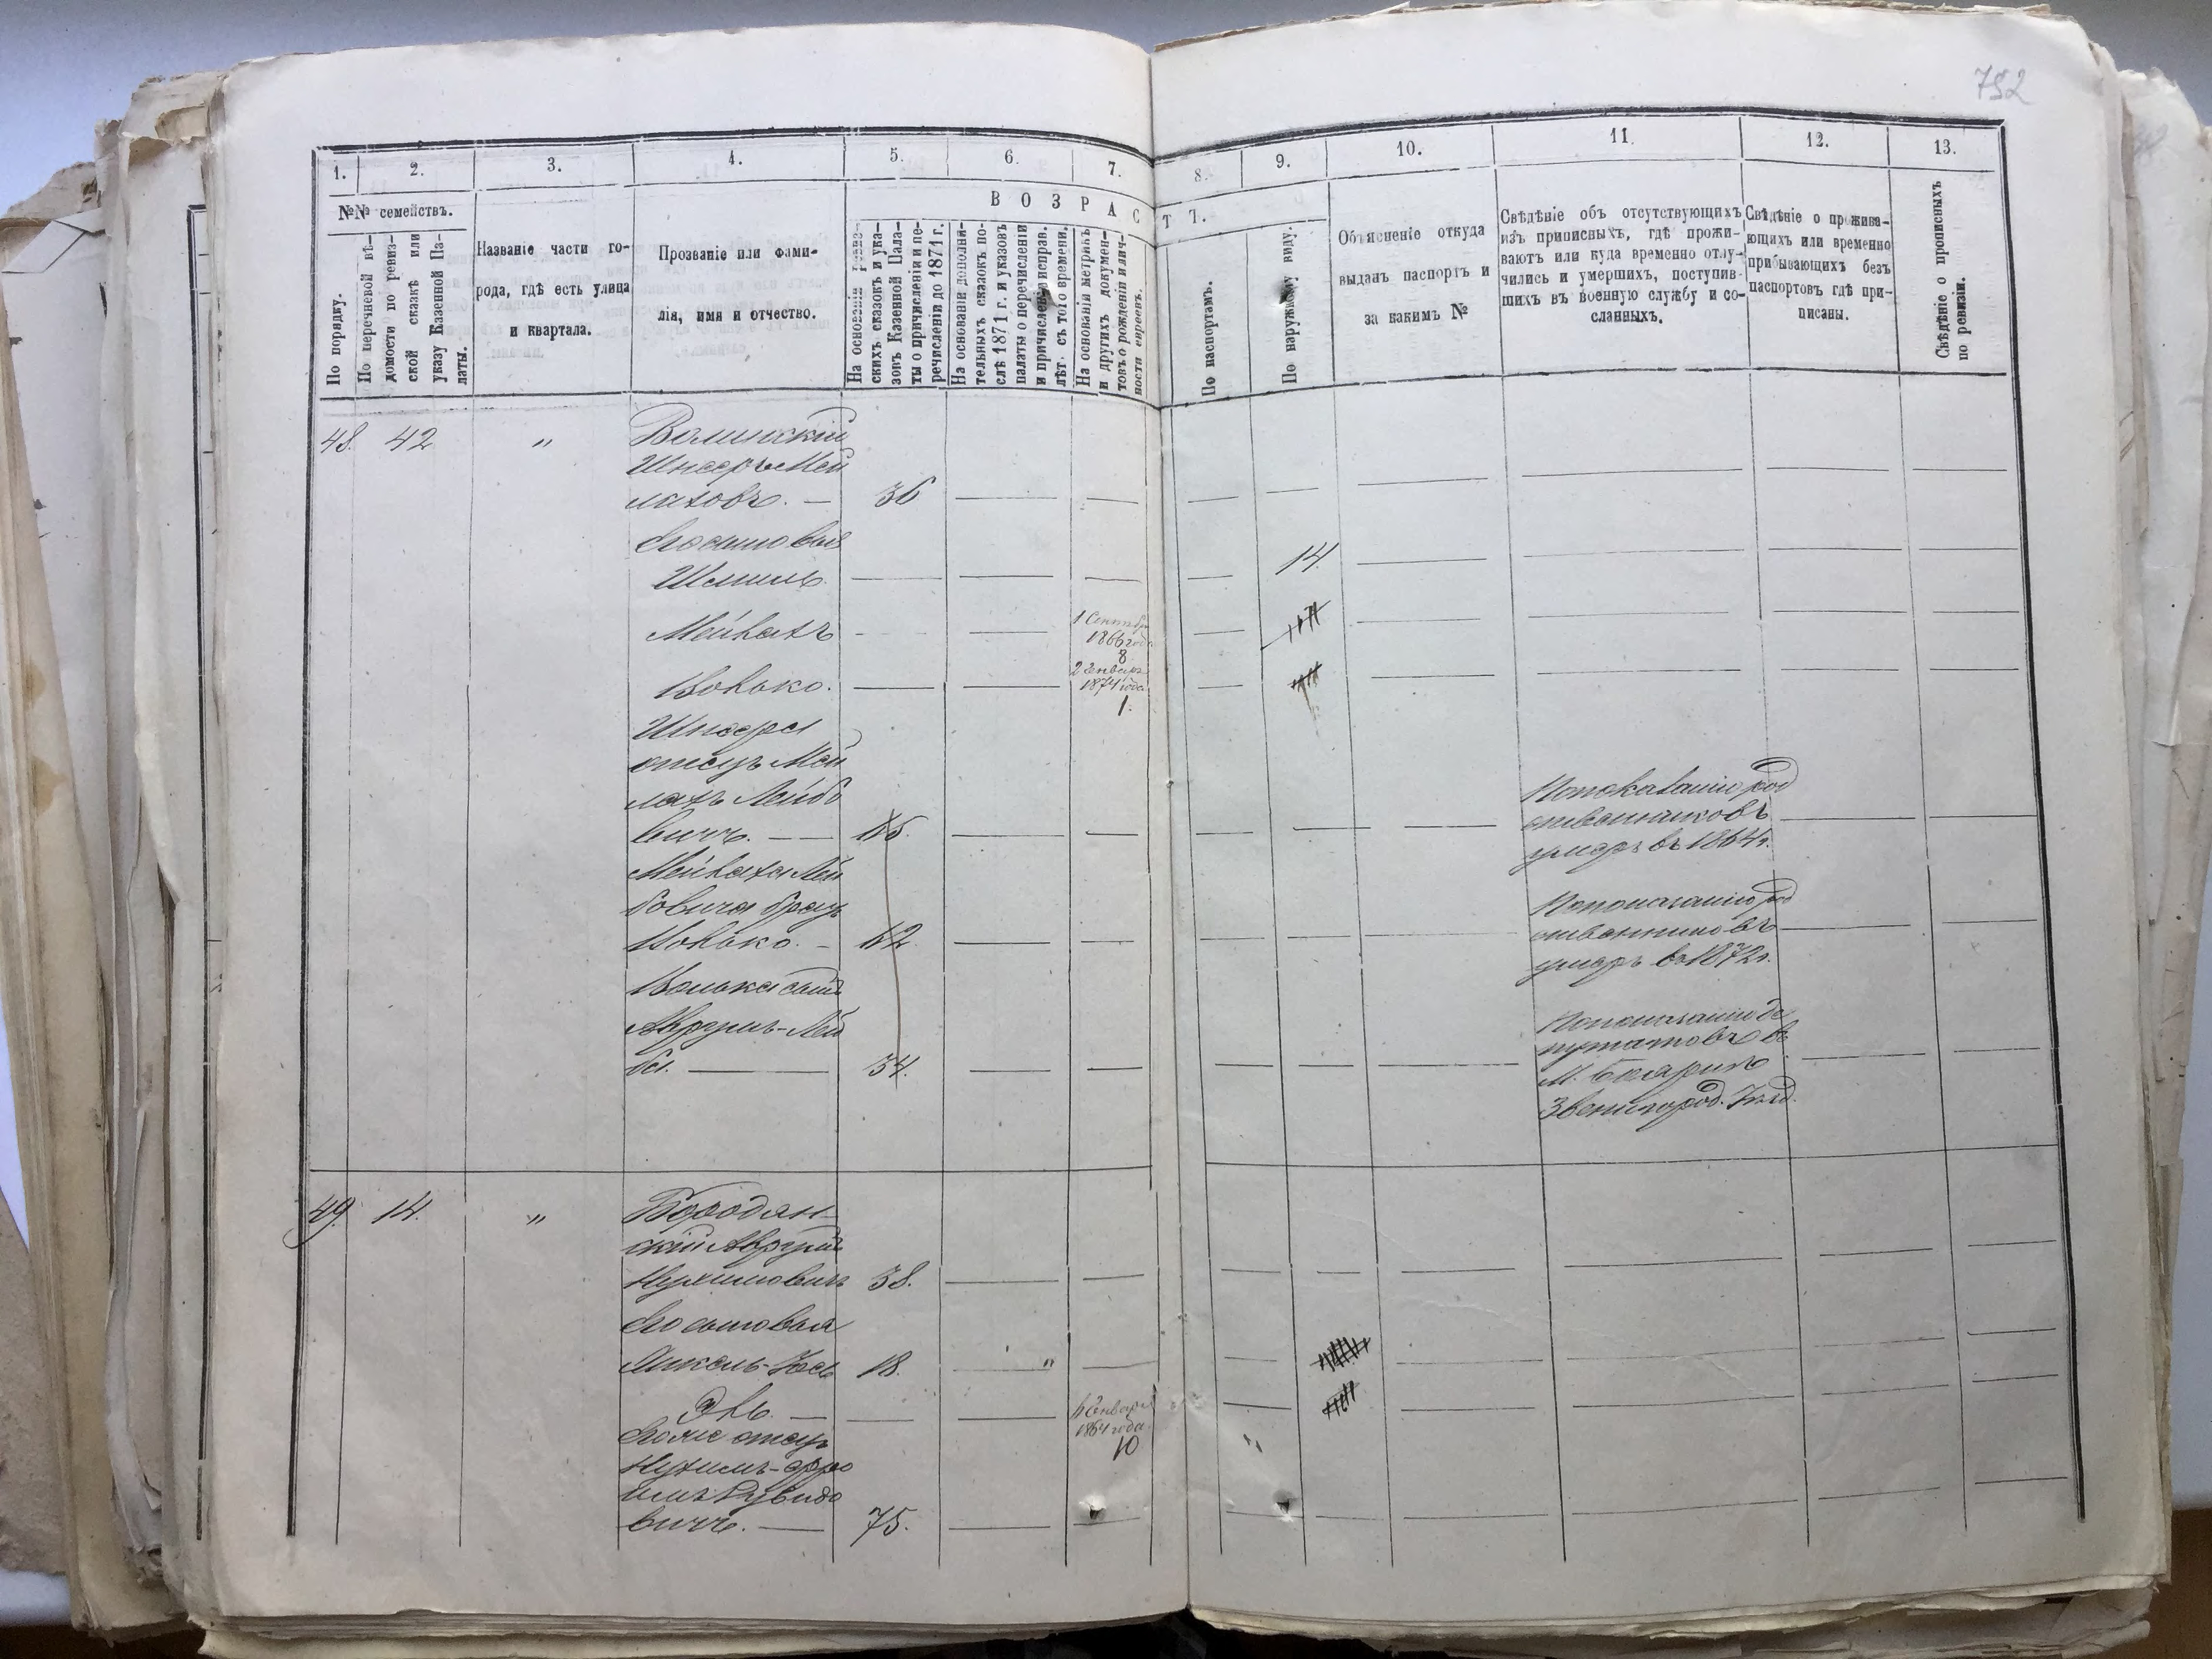 752
1.
2.
3.
4.
5.
6.
7.
8.
9.
10.
11.
12.
13.
№№ семействъ.
ВОЗРАСТЪ.
По порядку.
По перечневой вѣ-
домости по ревиз-
ской сказкѣ или
указу Казенной Па-
латы.
Названіе части го-
рода, гдѣ есть улица
и квартала.
Прозваніе или фами-
лія, имя и отчество.
На основаніи ревиз-
скихъ сказокъ и ука-
зовъ Казенной Пала-
ты о причисленіи и пе-
речисленіи до 1871 г.
На основаніи дополни-
тельныхъ сказокъ по-
слѣ 1871 г. и указовъ
палаты о перечисленіи
и причисленіи исправ.
лѣт. съ того времени.
На основаніи метрикъ
и другихъ докумен-
товъ о рожденіи и лич-
ности евреевъ.
По паспортамъ.
По наружному виду.
Объясненіе откуда
выданъ паспортъ и
за какимъ №
Свѣдѣніе объ отсутствующихъ
изъ приписныхъ, гдѣ прожи-
ваютъ или куда временно отлу-
чились и умершихъ, поступив-
шихъ въ военную службу и со-
сланныхъ.
Свѣдѣніе о прожива-
ющихъ или временно
прибывающихъ безъ
паспортовъ гдѣ при-
писаны.
Свѣдѣніе о прописныхъ
по ревизіи.
48. 42 "
Волинскій
Шнееръ Мей
лаховъ. — 36
Его сыновья
Шмиль. 14
Мейлахъ 1 Сентября
1866 года
8
Волько. 2 Января
1874 года
1.
Шнеера
отецъ Мей
лахъ Лейбо
вичъ. —
По показанію род
ственниковъ
умеръ въ 1864 г.
Мейлаха Лей
бовича братъ
Волько. - 62.
По показанію род
ственниковъ
умеръ въ 1872 г.
Волька сынъ
Аврумъ-Лей
ба. — 34.
По показанію де
путатовъ въ
М.
Звенигород. Уѣзд.
49. 14. "
Бородян-
скій Аврумъ
Нухимовичъ 38.
Его сыновья
Янкель-Іось 18. "
Эль. — Января
1864 года
10
отецъ
Нухимъ-Фро
имъ Рувидо
вичъ. — 75.